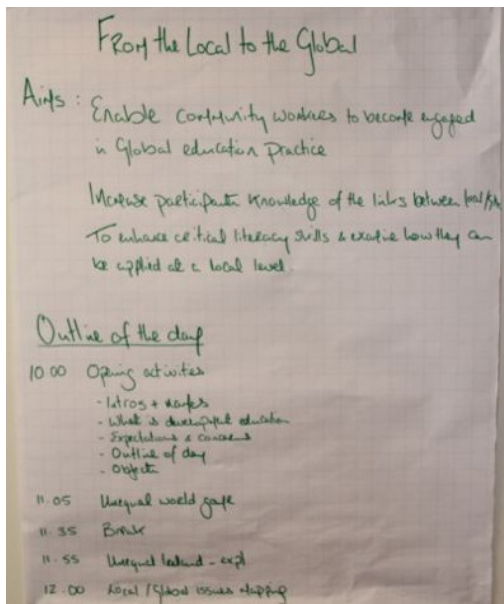 From the Local to the Global
Aims : Enable community workers to become engaged
in Global education practice
Increase participants knowledge of the links between local/
To enhance critical literacy skills & examine how they can
be applied at a local level.
Outline of the day
10 00 Opening activities
- Intros + names
- What is development education
- Expectations & concerns
- Outline of day
- Objects
11.05 Unequal world game
11.35 Break
11.55 Unequal Ireland -
12.00 Local / Global issues mapping